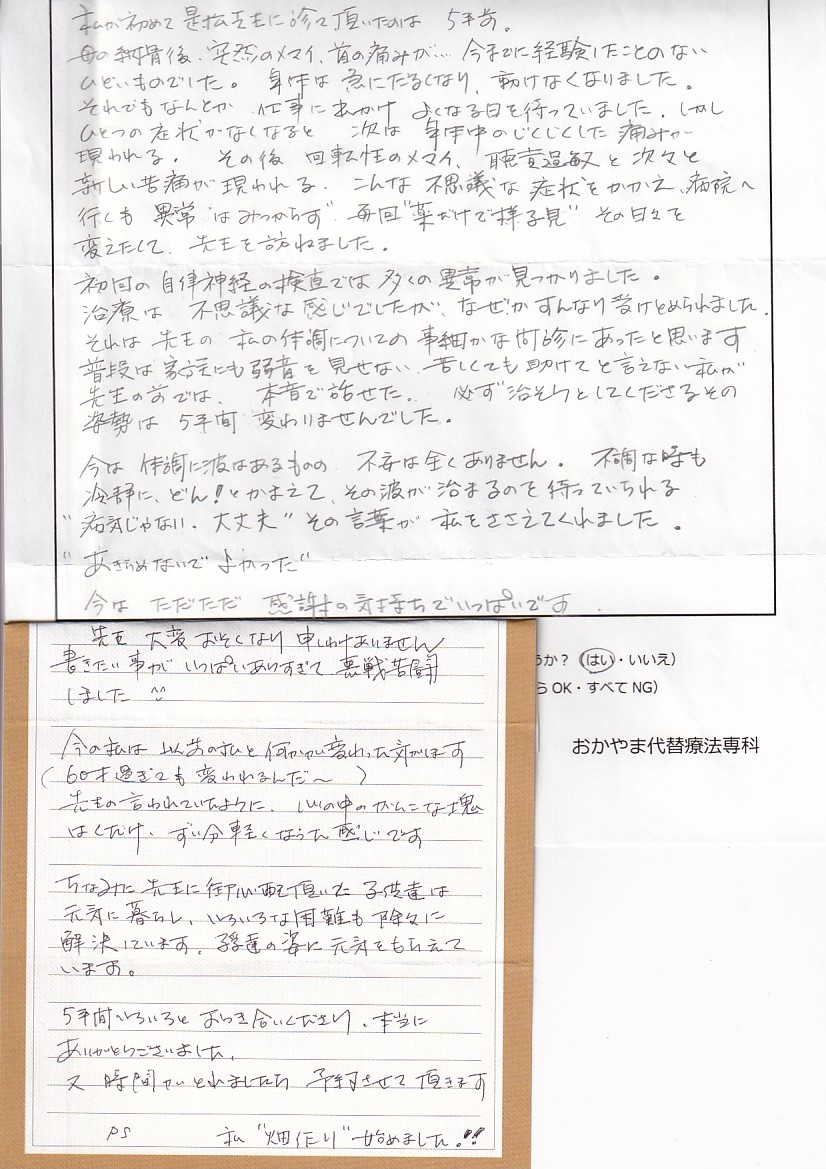 私が初めて是松先生に診て頂いたのは 5年前。
母の納骨後、突然のメマイ、首の痛みが… 今までに経験したことのない
ひどいものでした。 身体は 急にだるくなり、動けなくなりました。
それでもなんとか 仕事に出かけ よくなる日を待っていました。しかし
ひとつの症状がなくなると 次は 身体中のじくじくした 痛みが
現われる。 その後 回転性のメマイ、 聴覚過敏 と 次々と
新しい苦痛が 現われる。 こんな 不思議な 症状をかかえ、病院へ
行くも 異常 はみつからず 毎回"薬だけで様子見" その日々を
変えたくて、先生を訪ねました。
初回の自律神経の検査では 多くの異常が見つかりました。
治療は 不思議な 感じでしたが、なぜか すんなり受けとめられました。
それは 先生の 私の体調についての 事細かな 問診にあったと思います
普段は 家族にも弱音を見せない、苦しくても助けてと言えない 私が
先生の前では、 本音で話せた。 必ず治そうとしてくださるその
姿勢は 5年間 変わりませんでした。
今は 体調に波はあるものの 不安は全くありません。 不調な時も
冷静に、どん!とかまえて、その波が治まるのを待っていられる
"病気じゃない、大丈夫" その言葉が 私をささえてくれました。
"あきらめないで よかった"
今は ただただ 感謝の気持ちでいっぱいです。
先生 大変 おそくなり 申しわけありません
書きたい事が いっぱいありすぎて 悪戦苦闘
しました ^^
うか？ (はい・いいえ)
らOK・すべてNG)
おかやま代替療法専科
今の私は 以前の私と何かが変わった気がします
(60才過ぎても 変われるんだ〜 )
先生の言われていたように、心の中のがんこな塊
はくだけ、ずい分軽くなった感じです
ちなみに 先生に御心配頂いた 子供達は
元気に暮らし、いろいろな困難も 除々に
解決しています。 子孫達の姿に元気をもらえて
います。
5年間いろいろと おつき合いくださり、本当に
ありがとうございました。
又 時間がとれましたら 予約させて頂きます
PS 私 "畑作り" 始めました!!